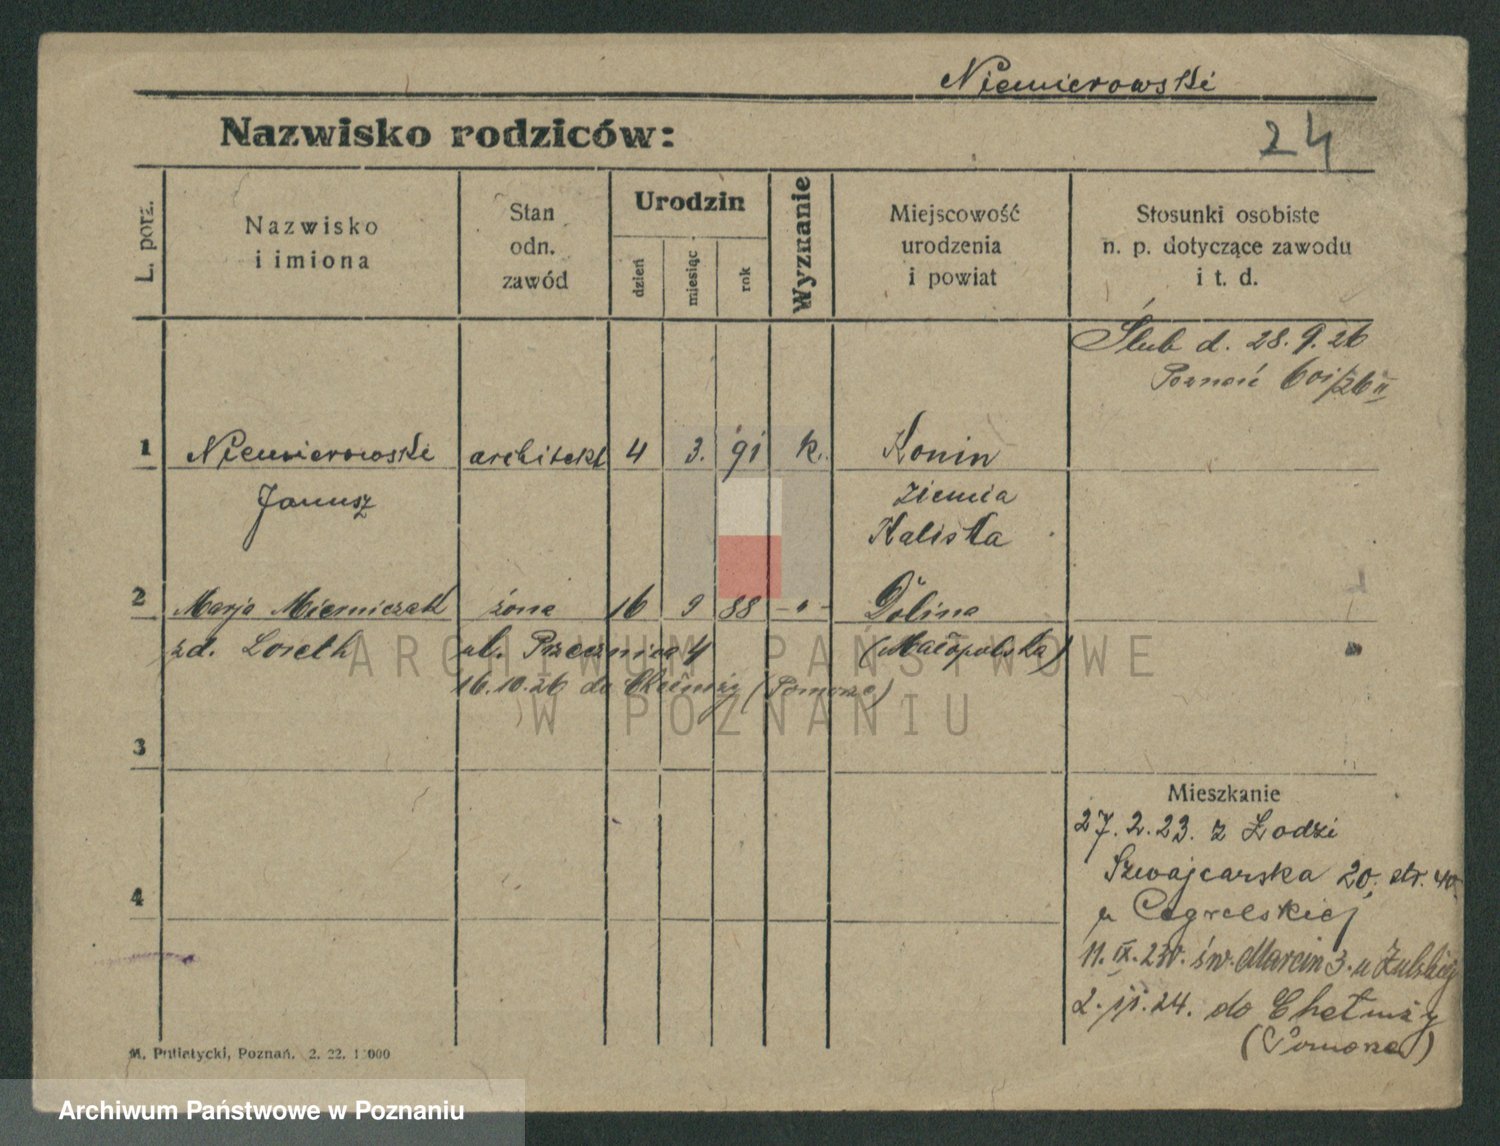 Niemierowski
Nazwisko rodziców:
24
L. porz.
Nazwisko
i imiona
Stan
odn.
zawód
Urodzin
dzień
miesiąc
rok
Wyznanie
Miejscowość
urodzenia
i powiat
Stosunki osobiste
n. p. dotyczące zawodu
i t. d.
Ślub d. 28. 9. 26
Poznań 601/26 II
1 Niemierowski architekt 4 3. 91 k. Konin
Janusz ziemia
Kaliska
2 Marja Mierniczak żona 16 9 88 -"- Dolina
zd. Loreth ul. Przecznica 4 (Małopolska)
16.10.26 do Chełmży (Pomorze)
3
4
Mieszkanie
27. 2. 23. z Łodzi
Szwajcarska 20, str. 40
u Cegielskiej
11. IX. 23r. św. Marcin 3. u
2. II. 24. do Chełmży
(Pomorze)
M. Putiatycki, Poznań. 2. 22. 1000
ARCHIWUM PAŃSTWOWE
W POZNANIU
Archiwum Państwowe w Poznaniu